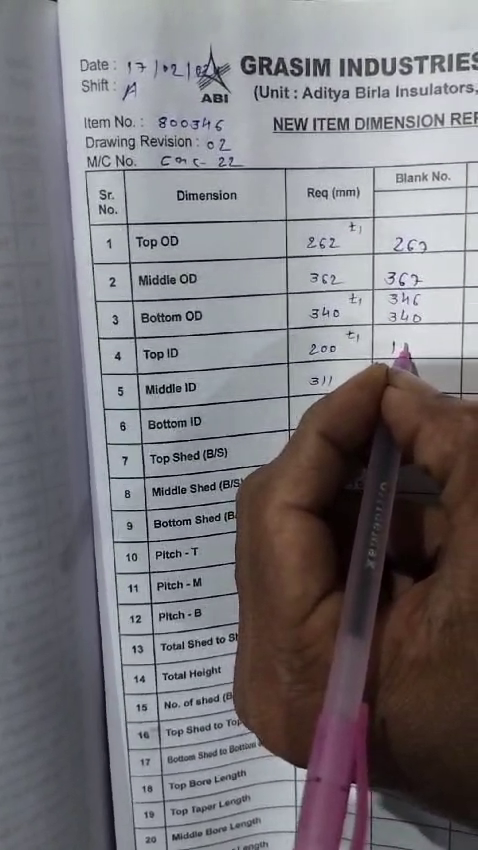 Date : 17/02/
GRASIM INDUSTRIES
Shift : A
ABI
(Unit : Aditya Birla Insulators,
Item No. : 800346
NEW ITEM DIMENSION REP
Drawing Revision : 02
M/C No. CNC-22
Sr. No. Dimension Req (mm) Blank No.
1 Top OD 262 ±1 267
2 Middle OD 362 367
3 Bottom OD 340 ±1 346 340
4 Top ID 200 ±1
5 Middle ID 311
6 Bottom ID
7 Top Shed (B/S)
8 Middle Shed (B/S)
9 Bottom Shed (B/
10 Pitch - T
11 Pitch - M
12 Pitch - B
13 Total Shed to Sh
14 Total Height
15 No. of shed (B
16 Top Shed to Top
17 Bottom Shed to Bottom
18 Top Bore Length
19 Top Taper Length
20 Middle Bore Length
Length
unomax